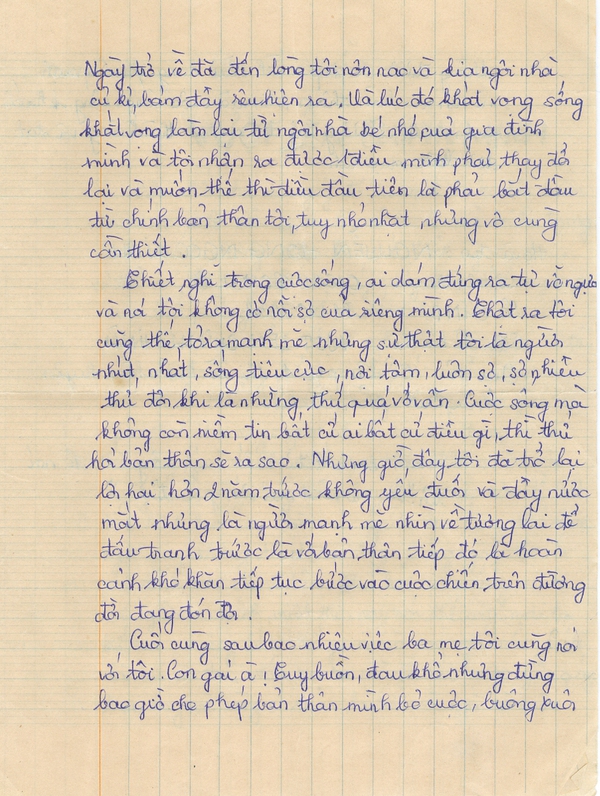 Ngày trở về đã đến lòng tôi nôn nao và kia ngôi nhà
cũ kĩ, bám đầy rêu hiện ra. Và lúc đó khát vọng sống
khát vọng làm lại từ ngôi nhà bé nhỏ quá gia đình
mình và tôi nhận ra được điều mình phải thay đổi
lại và muốn thế thì điều đầu tiên là phải bắt đầu
từ chính bản thân tôi, tuy nhỏ nhặt nhưng vô cùng
cần thiết.
Thiết nghĩ trong cuộc sống, ai dám đứng ra tự vỗ ngực
và nói tôi không có nỗi sợ của riêng mình. Thật ra tôi
cũng thế, tỏ ra mạnh mẽ nhưng sự thật tôi là người
nhút nhát, sống tiêu cực, nội tâm, luôn sợ, sợ nhiều
thứ đôi khi là những thứ quá vớ vẩn. Cuộc sống mà
không còn niềm tin bất cứ ai bất cứ điều gì, thì thử
hỏi bản thân sẽ ra sao. Nhưng giờ đây tôi đã trở lại
lợi hại hơn 2 năm trước không yếu đuối và đầy nước
mắt nhưng là người mạnh mẽ nhìn về tương lai để
đấu tranh trước là với bản thân tiếp đó là hoàn
cảnh khó khăn tiếp tục bước vào cuộc chiến trên đường
đời đang đón đợi.
Cuối cùng sau bao nhiêu việc ba mẹ tôi cũng nói
với tôi. Con gái à! Tuy buồn, đau khổ nhưng đừng
bao giờ cho phép bản thân mình bỏ cuộc, buông xuôi